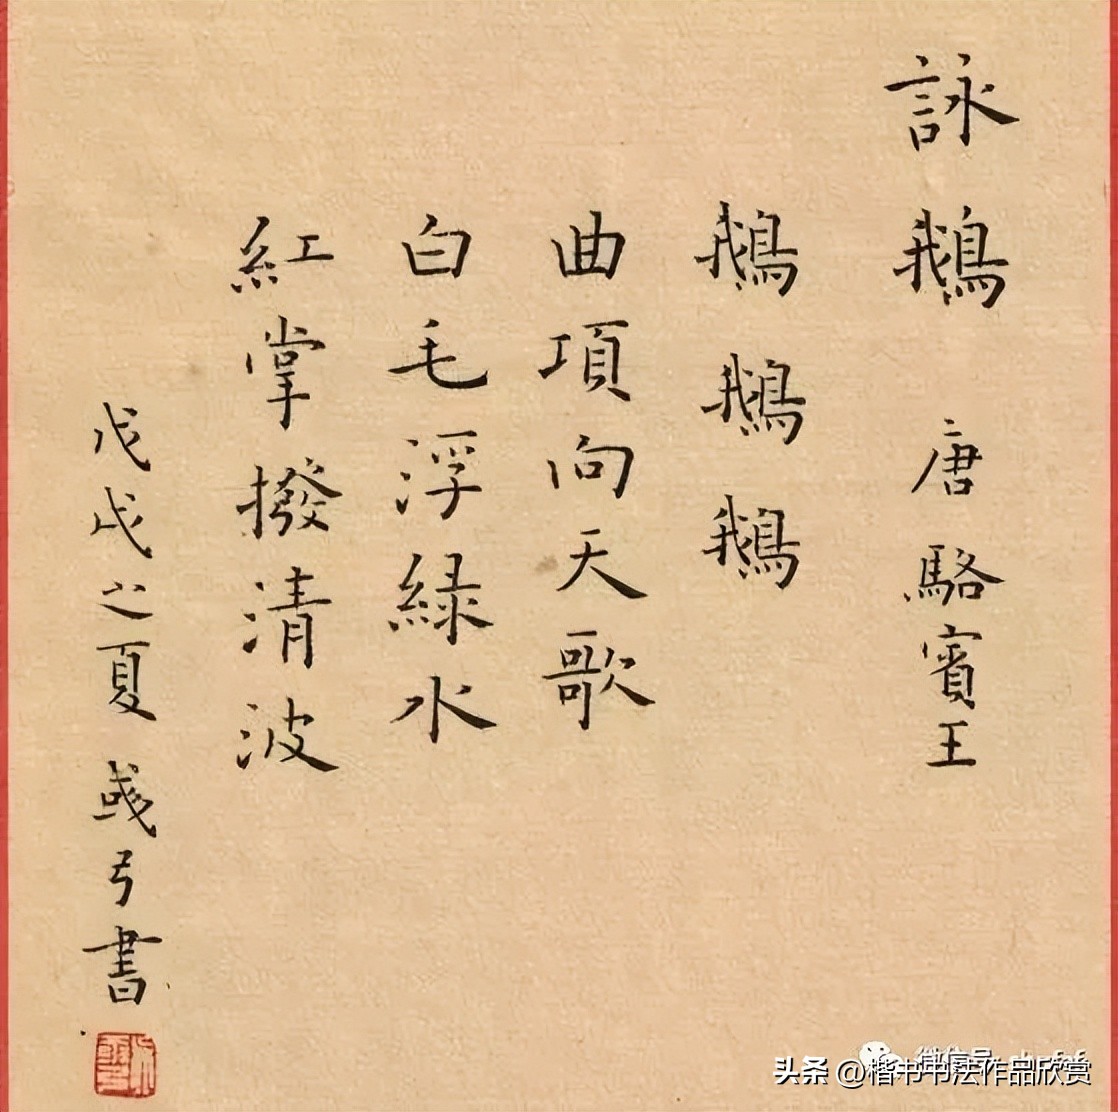 詠鵝 唐 駱賓王
鵝鵝鵝
曲項向天歌
白毛浮緑水
紅掌撥清波
戊戌之夏 彧弓書
头条 @楷书书法作品欣赏